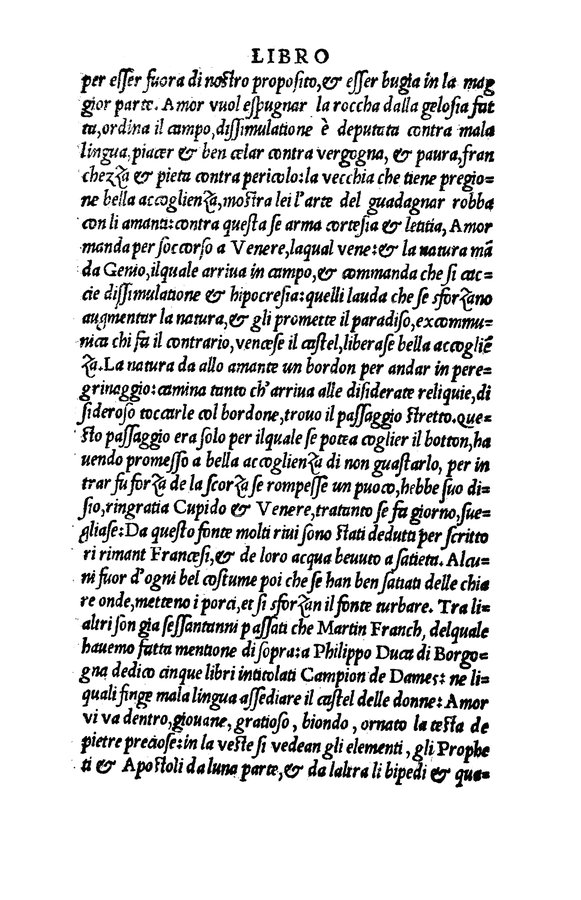 LIBRO
per esser fuora di nostro proposito,& esser bugia in la mag
gior parte. Amor vuol espugnar la roccha dalla gelosia fat
ta,ordina il campo,dissimulatione è deputata contra mala
lingua,piacer & ben celar contra vergogna, & paura,fran
chezza & pieta contra pericolo:la vecchia che tiene pregio=
ne bella accoglienza,mostra lei l'arte del guadagnar robba
con li amanti:contra questa se arma cortesia & letitia, Amor
manda per soccorso a Venere,laqual vene:& la natura mã
da Genio,ilquale arriua in campo,& commanda che si cac=
cie dissimulatione & hipocresia:quelli lauda che se sforzano
augmentar la natura,& gli promette il paradiso,excommu=
nica chi fa il contrario,vencese il castel,liberase bella accogliẽ
za.La natura da allo amante un bordon per andar in pere=
grinaggio:camina tanto ch'arriua alle disiderate reliquie,di
sideroso toccarle col bordone,trouo il passaggio stretto.Que=
sto passaggio era solo per ilquale se potea coglier il botton,ha
uendo promesso a bella accoglienza di non guastarlo, per in
trar fu forza de la scorza se rompesse un puoco,hebbe suo di=
sio,ringratia Cupido & Venere,tratanto se fa giorno,sue=
gliase:Da questo fonte molti riui sono stati dedutti per scritto
ri rimant Francesi,& de loro acqua beuuto a satieta. Alcu=
ni fuor d'ogni bel costume poi che se han ben satiati delle chia
re onde,metteno i porci,et si sforzan il fonte turbare. Tra li=
altri son gia sessantanni passati che Martin Franch, delquale
hauemo fatta mentione di sopra:a Philippo Duca di Borgo=
gna dedico cinque libri intitolati Campion de Dames: ne li=
quali finge mala lingua assediare il castel delle donne:Amor
vi va dentro,giouane, gratioso, biondo, ornato la testa de
pietre preciose:in la veste si vedean gli elementi, gli Prophe
ti & Apostoli da luna parte,& da laltra li bipedi & qua=